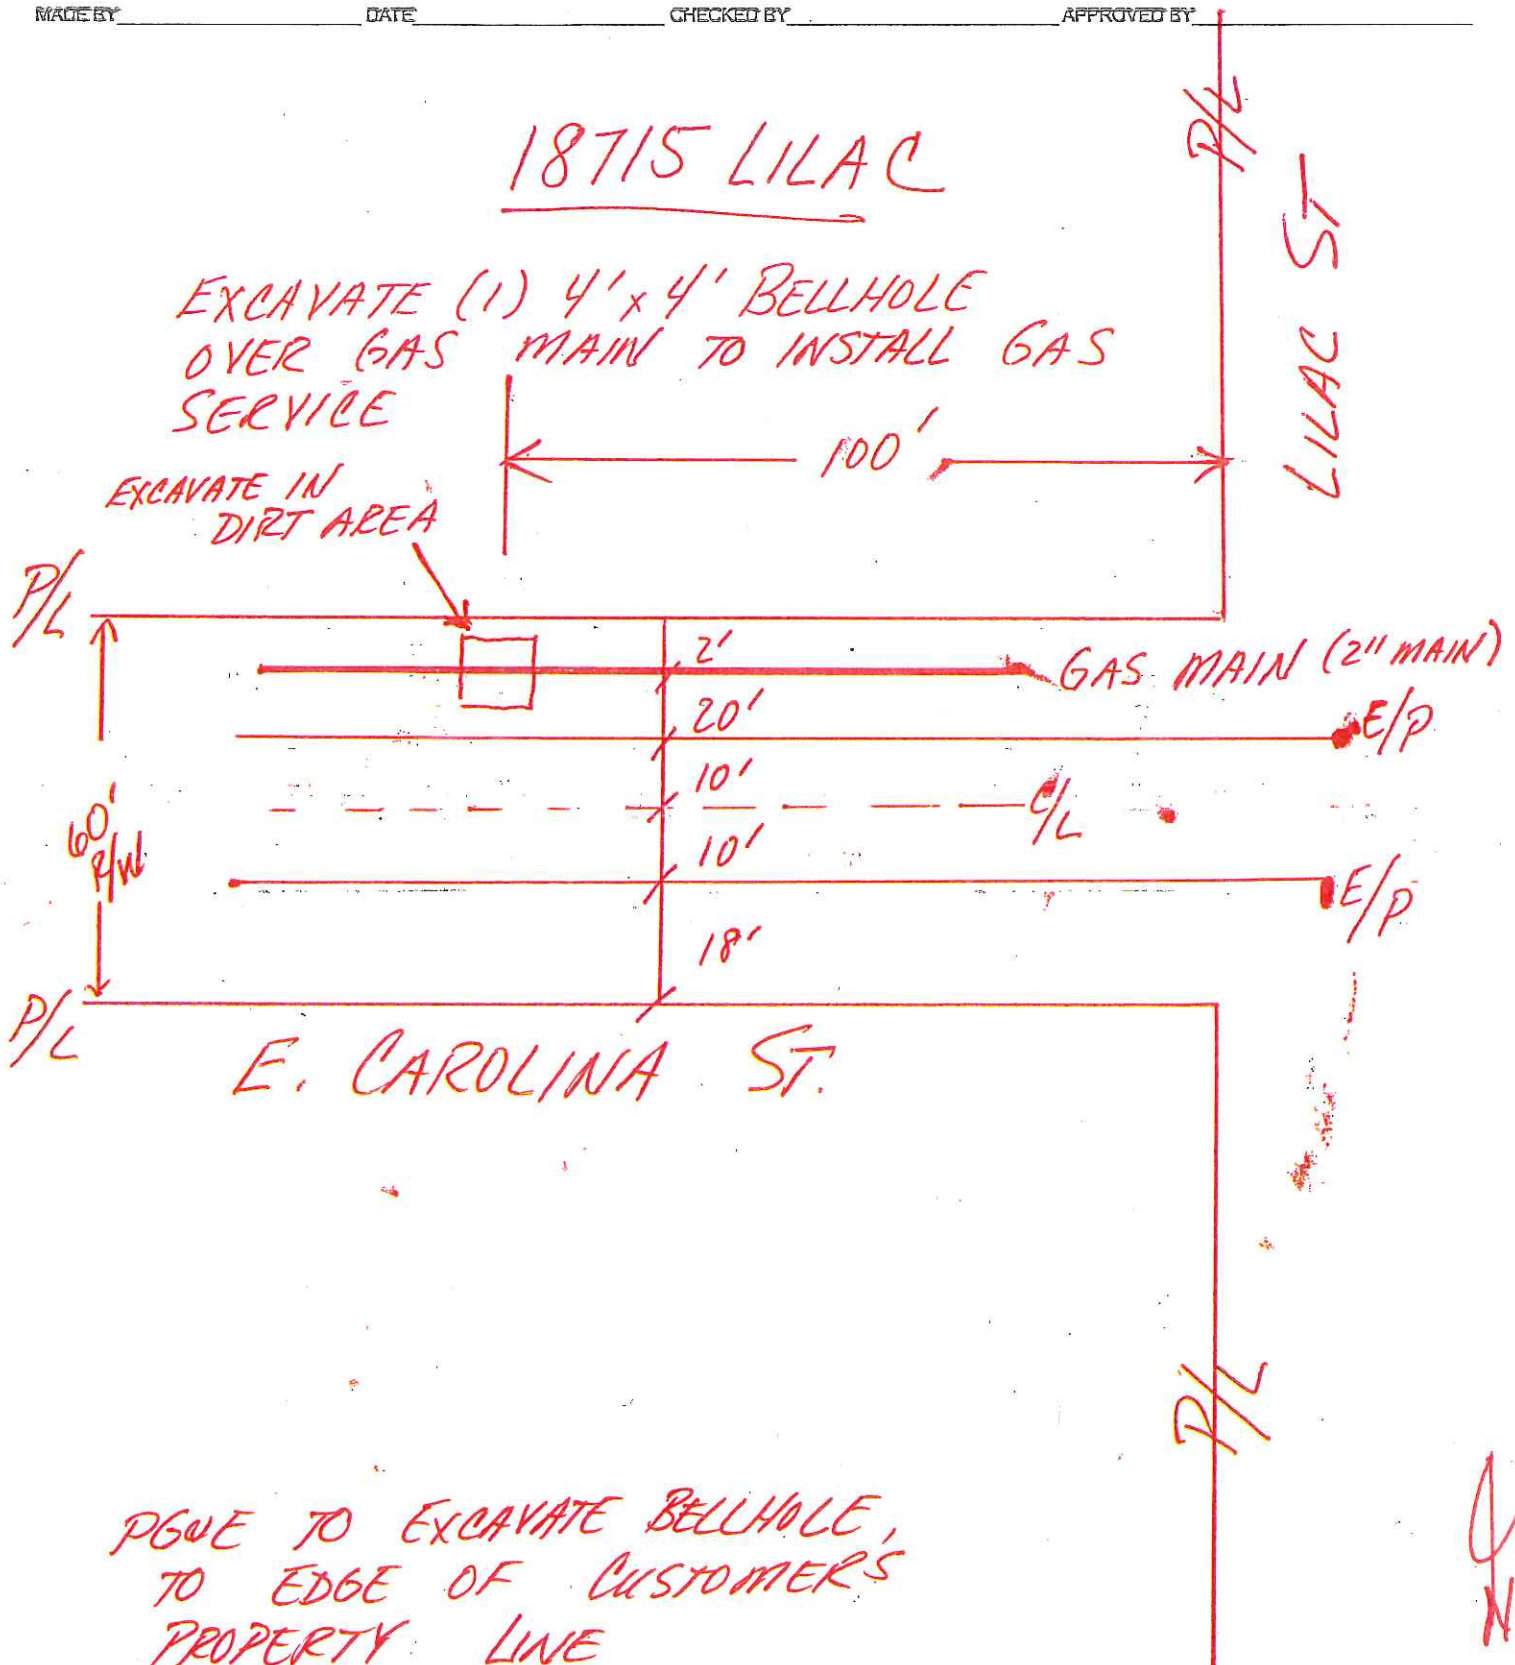 MADE BY DATE CHECKED BY APPROVED BY
P/L
18715 LILAC
LILAC ST
EXCAVATE (1) 4' x 4' BELLHOLE
OVER GAS MAIN TO INSTALL GAS
SERVICE
100'
EXCAVATE IN
DIRT AREA
P/L
2'
GAS MAIN (2" MAIN)
20'
E/P
10'
C/L
60'
R/W
10'
E/P
18'
P/L
E. CAROLINA ST.
P/L
PG&E TO EXCAVATE BELLHOLE,
TO EDGE OF CUSTOMER'S
PROPERTY LINE